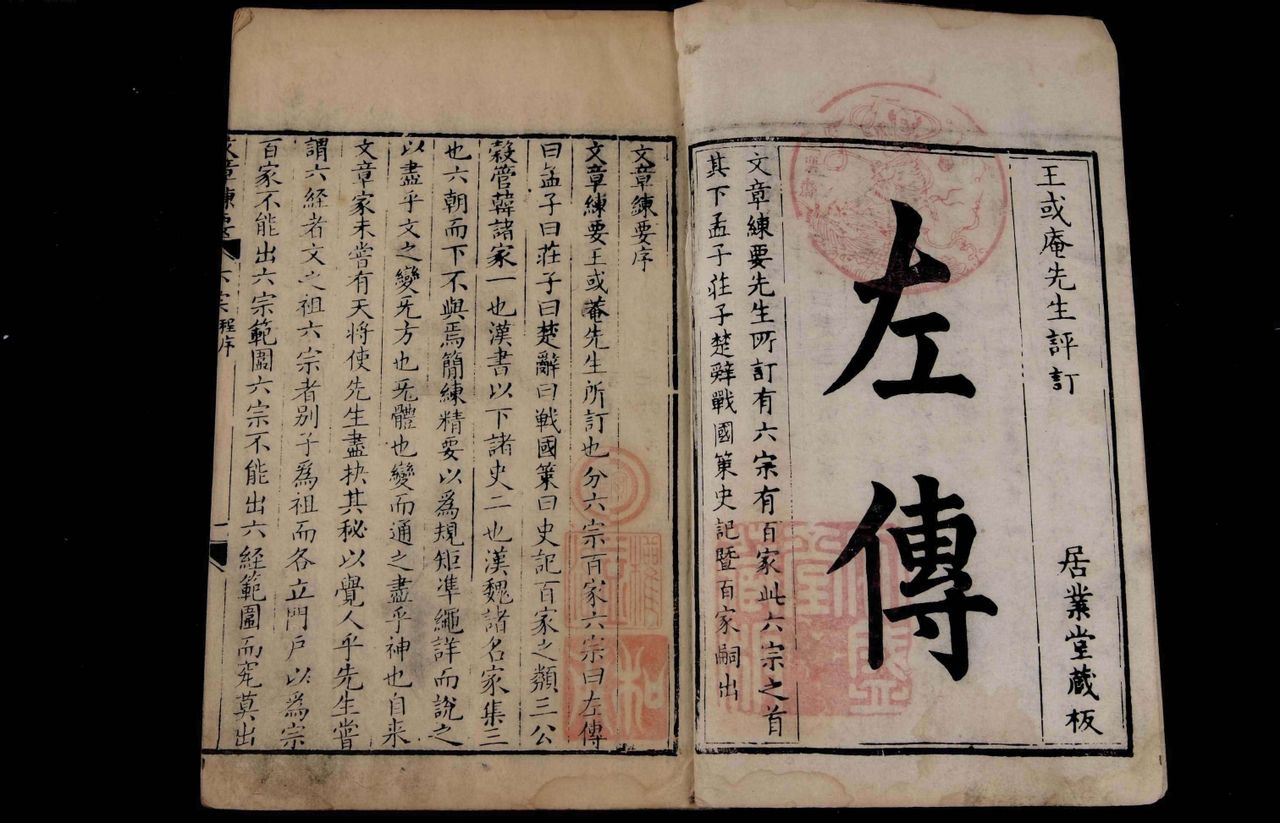 王或庵先生評訂
居業堂藏板
左傳
文章練要先生所訂有六宗有百家此六宗之首
其下孟子莊子楚辭戰國策史記暨百家嗣出
文章練要序
文章練要王或菴先生所訂也分六宗百家六宗曰左傳
曰孟子曰莊子曰楚辭曰戰國策曰史記百家之類三公
穀管韓諸家一也漢書以下諸史二也漢魏諸名家集三
也六朝而下不與焉簡練精要以為規矩凖繩詳而說之
以盡乎文之變旡方也旡體也變而通之盡乎神也自来
文章家未嘗有天將使先生盡抉其秘以覺人乎先生嘗
謂六經者文之祖六宗者别子為祖而各立門戸以為宗
百家不能出六宗範圍六宗不能出六經範圍而究莫出
文章練要 六宗程序 一